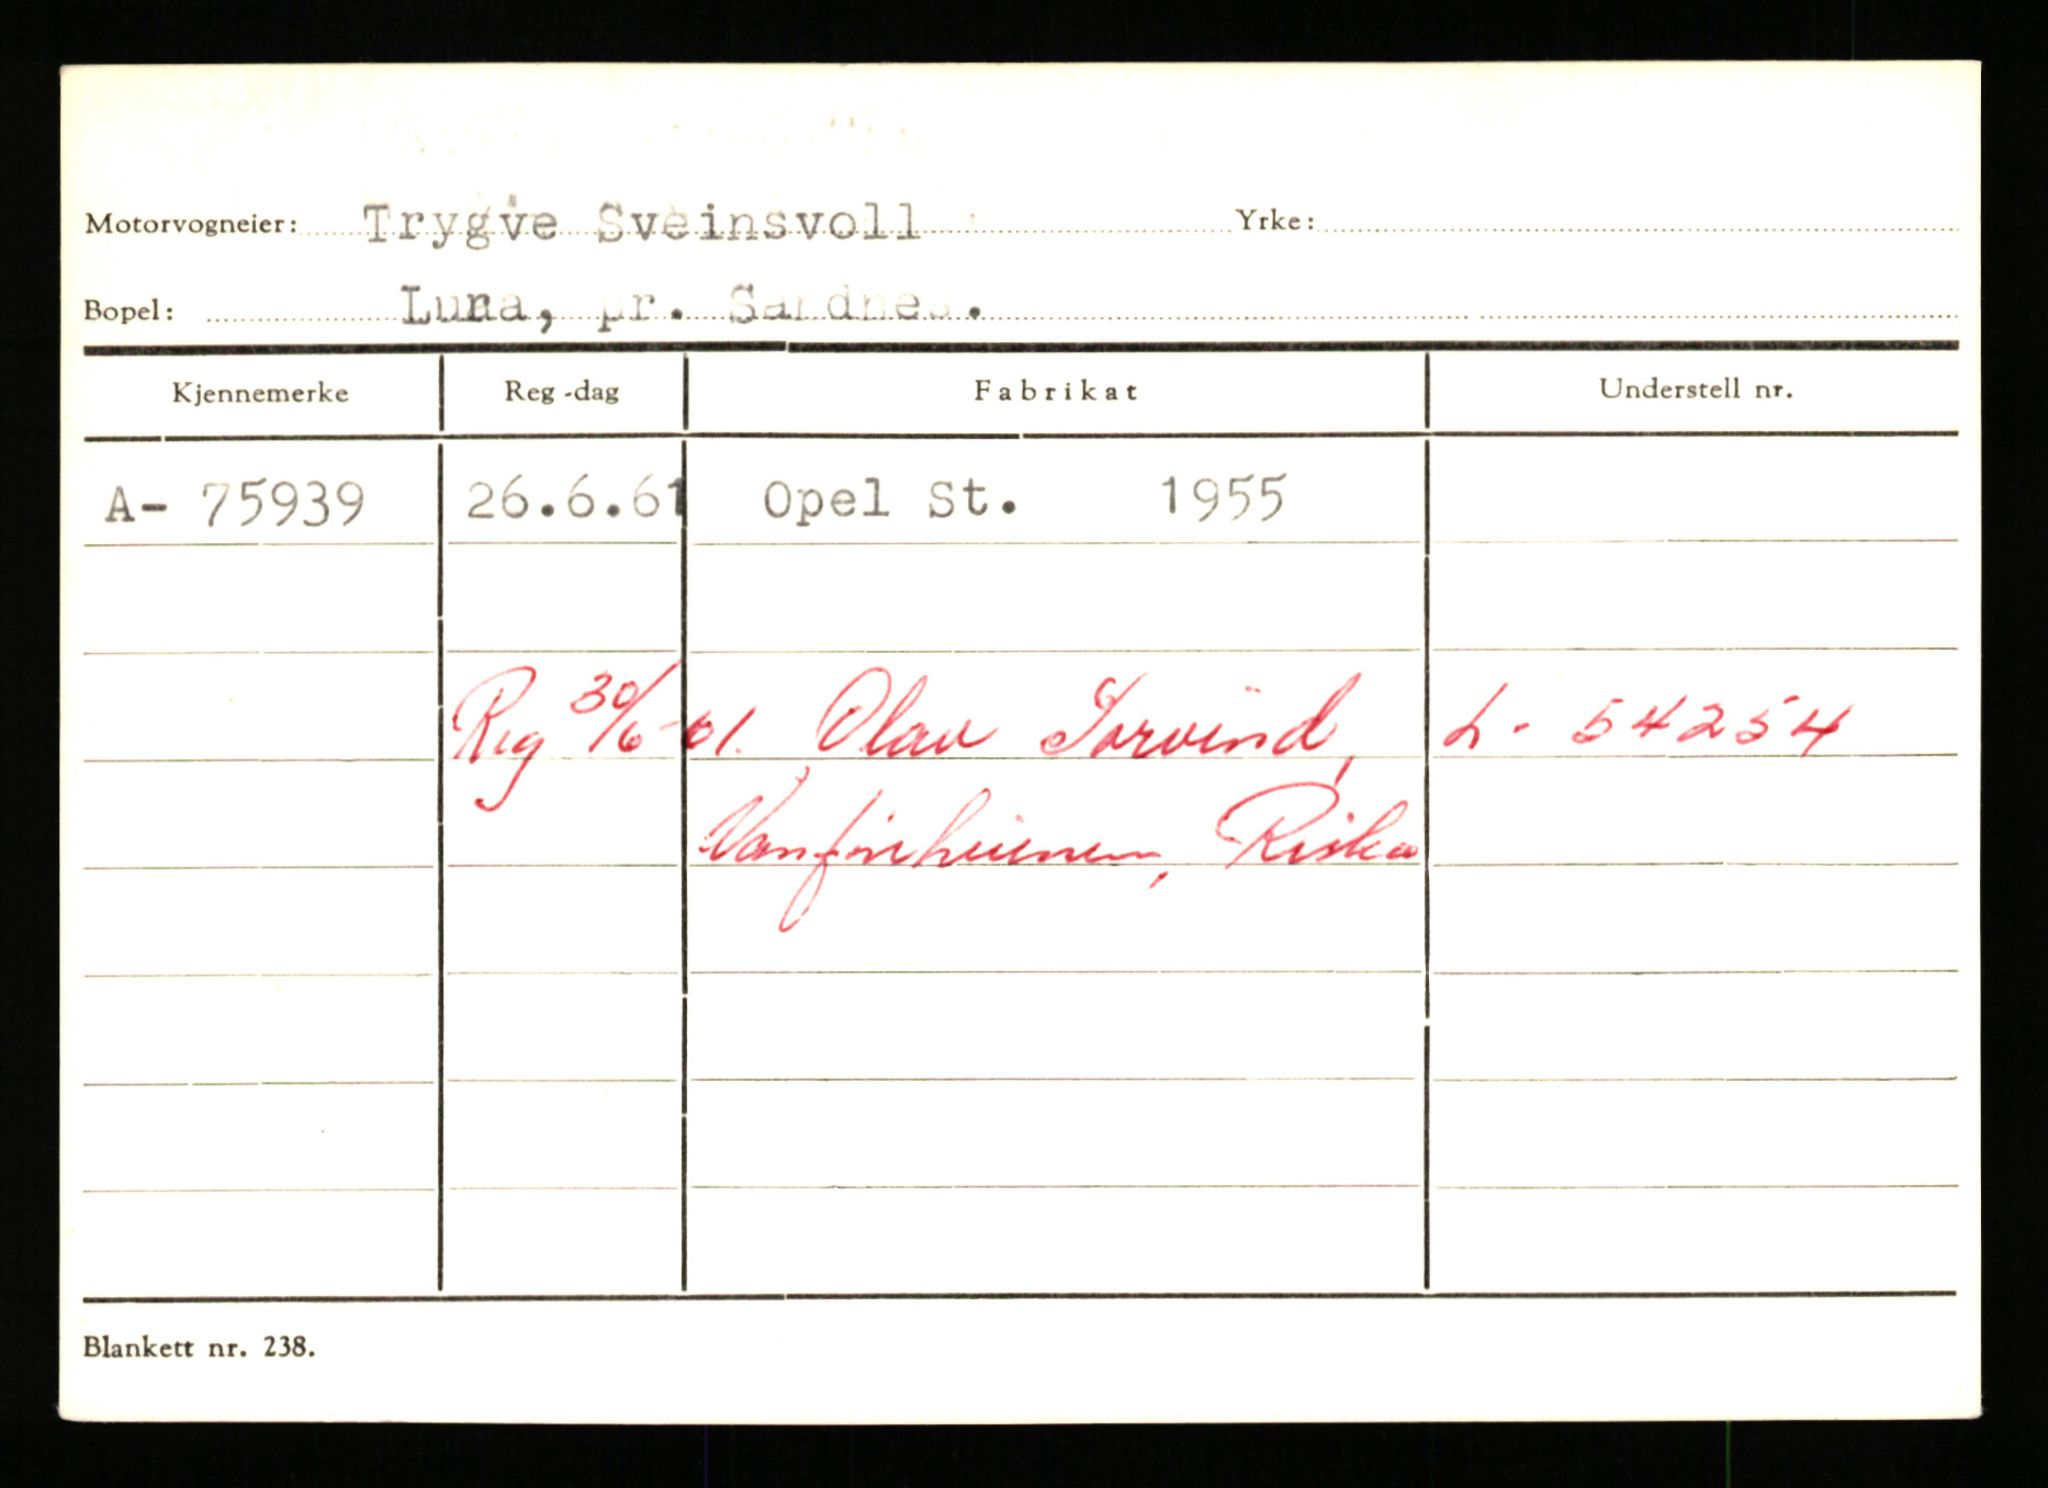 Motorvogneier: Trygve Sveinsvoll Yrke:
Bopel: Lura, pr. Sandnes.
Kjennemerke Reg-dag Fabrikat Understell nr.
A- 75939 26.6.61 Opel St. 1955
Reg 30/6-61. Olav Sorvind, L- 54254
Riska
Blankett nr. 238.